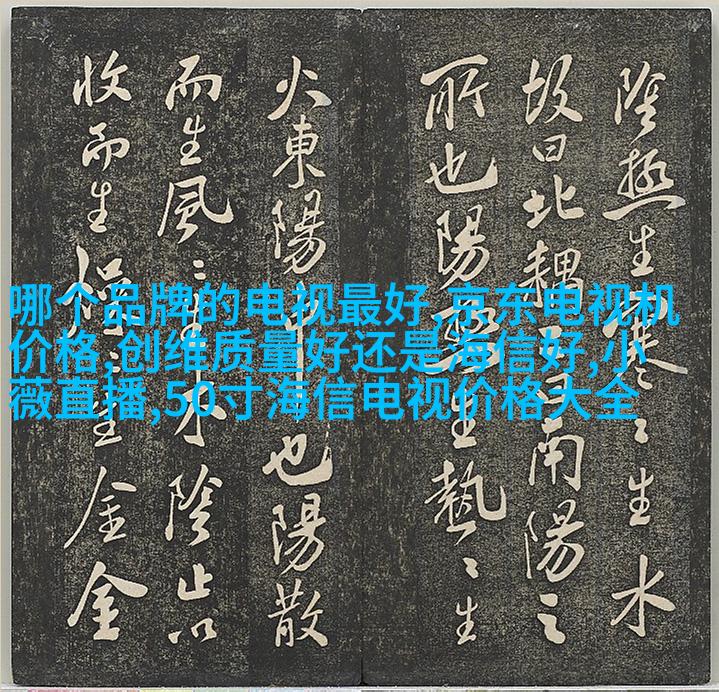 哪个品牌的电视最好,京东电视机
价格,创维质量好还是海信好,小
薇直播,50寸海信电视价格大全
陰極生寒〻生水
故曰北耦南陽之
所也陽極生熱〻生
火東陽也陽散
而生風〻生木陰止以
收而生燥〻生金金